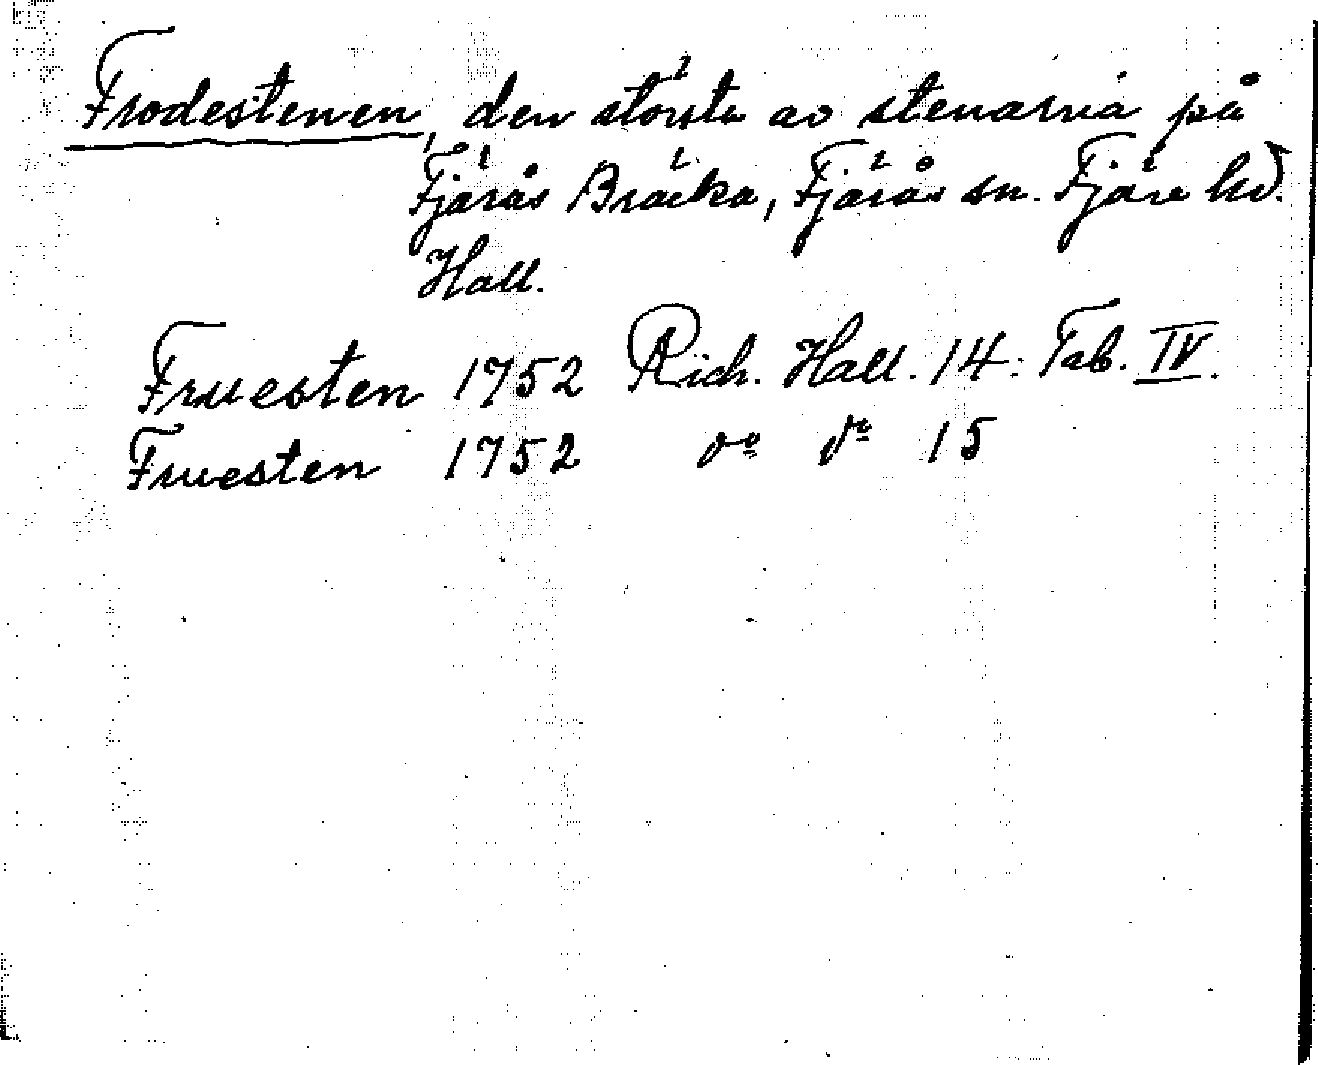 Frodestenen, den största av stenarna på
Fjärås Bräcka, Fjärås sn. Fjäre hd.
Hall.
Fruesten 1752 Rich. Hall. 14: Tab. IV.
Fruesten 1752 do do 15